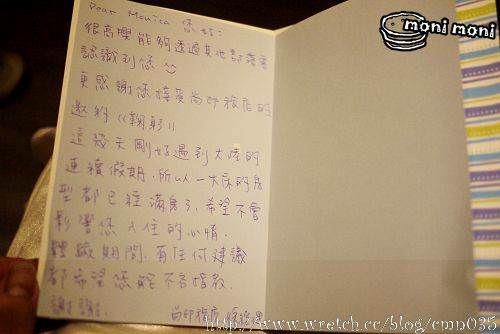 moni moni
Dear Monica 您好:
很高興能夠透過其他部落客
認識到您
更感謝您接受尚印旅店的
邀約((鞠躬))
這幾天剛好遇到大陸的
連續假期,所以一大床的房
型都已經滿房了,希望不會
影響您入住的心情.
體驗期間,有任何建議
都希望您能不吝指教.
謝謝.
尚印旅店
http://www.wretch.cc/blog/cmn035